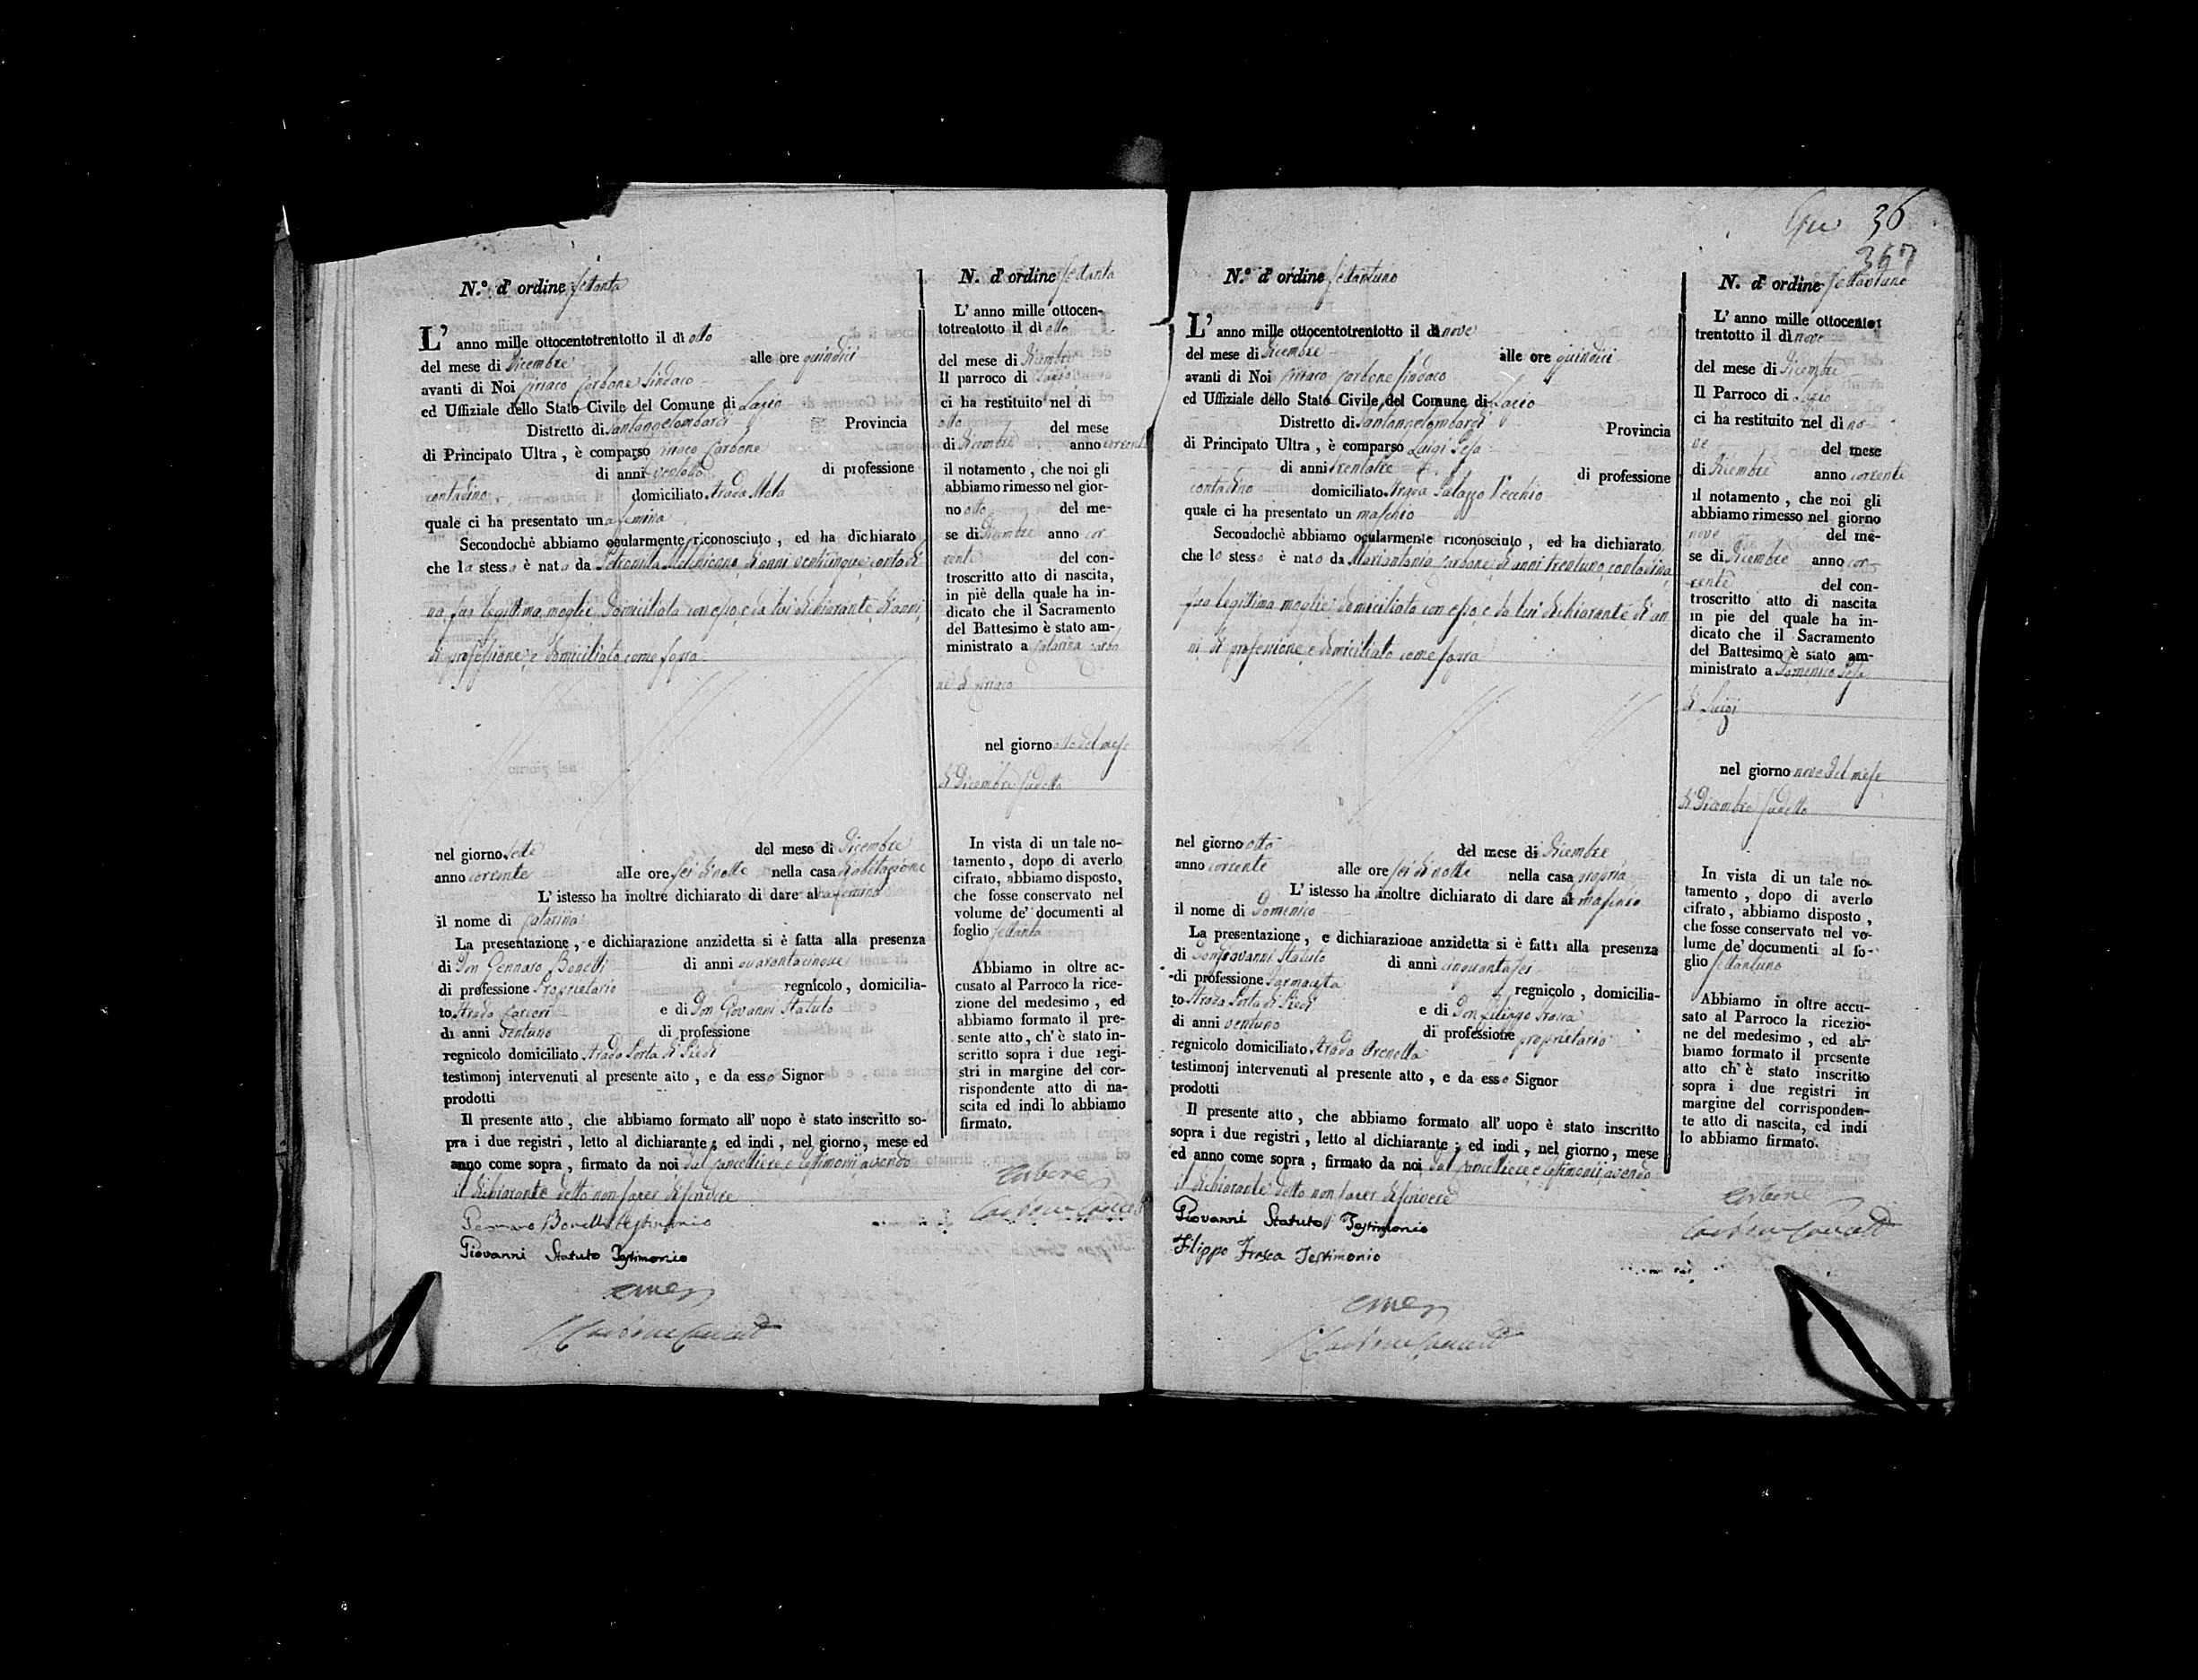 N.º d' ordine settanta
L' anno mille ottocentotrentotto il dì otto
del mese di Dicembre alle ore quindici
avanti di Noi Ciriaco Carbone Sindaco
ed Uffiziale dello Stato Civile del Comune di Lagio
Distretto di Santangelombardi Provincia
di Principato Ultra , è comparso Ciriaco Carbone
di anni ventotto di professione
contadino domiciliato strada Mola
quale ci ha presentato una femina
Secondochè abbiamo ocularmente riconosciuto , ed ha dichiarato
che la stessa è nata da Petronilla di anni venticinque contadi
na sua legittima moglie domiciliata con esso, e da lui dichiarante di anni,
di professione, e domiciliato come sopra
nel giorno sette del mese di Dicembre
anno corrente alle ore sei di notte nella casa di abitazione
L' istesso ha inoltre dichiarato di dare alla femina
il nome di Catarina
La presentazione , e dichiarazione anzidetta si è fatta alla presenza
di Don Gennaro Bonelli di anni quarantacinque
di professione Proprietario regnicolo , domicilia-
to Strada Carceri e di Don Giovanni Statuto
di anni ventuno di professione
regnicolo domiciliato strada Porta di Piedi
testimonj intervenuti al presente atto , e da esso Signor
prodotti
Il presente atto , che abbiamo formato all' uopo è stato inscritto so-
pra i due registri , letto al dichiarante ; ed indi , nel giorno, mese ed
anno come sopra , firmato da noi dal Cancelliere, e testimonii avendo
il dichiarante detto non saper scrivere
Gennaro Bonelli testimonio
Giovanni Statuto Testimonio
N. d' ordine settanta
L' anno mille ottocen-
totrentotto il dì otto
del mese di Dicembre
Il parroco di
ci ha restituito nel dì
otto del mese
di Dicembre anno corrente
il notamento , che noi gli
abbiamo rimesso nel gior-
no otto del me-
se di Dicembre anno cor
rente del con-
troscritto atto di nascita,
in piè della quale ha in-
dicato che il Sacramento
del Battesimo è stato am-
ministrato a Catarina Carbo
ne di Ciriaco
nel giorno otto del mese
di Dicembre sudetto
In vista di un tale no-
tamento , dopo di averlo
cifrato, abbiamo disposto,
che fosse conservato nel
volume de' documenti al
foglio settanta
Abbiamo in oltre ac-
cusato al Parroco la rice-
zione del medesimo , ed
abbiamo formato il pre-
sente atto, ch' è stato in-
scritto sopra i due regi-
stri in margine del cor-
rispondente atto di na-
scita ed indi lo abbiamo
firmato.
Carbone
36
367
N.º d' ordine settantuno
L' anno mille ottocentotrentotto il dì nove
del mese di Dicembre alle ore quindici
avanti di Noi Ciriaco Carbone Sindaco
ed Uffiziale dello Stato Civile del Comune di
Distretto di Santangelombardi Provincia
di Principato Ultra , è comparso Luigi Sesa
di anni trentatre di professione
contadino domiciliato strada Palazzo Vecchio
quale ci ha presentato un maschio
Secondochè abbiamo ocularmente riconosciuto , ed ha dichiarato
che lo stesso è nato da Mariantonia Carbone di anni trentuno contadina
sua legittima moglie domiciliata con esso, e da lui dichiarante di an
ni di professione, e domiciliato come sopra
nel giorno otto del mese di Dicembre
anno corrente alle ore sei di notte nella casa propria
L' istesso ha inoltre dichiarato di dare al maschio
il nome di Domenico
La presentazione , e dichiarazione anzidetta si è fatta alla presenza
di Don Giovanni Statuto di anni cinquantasei
di professione Farmacista regnicolo , domicilia-
to Strada Porta di Piedi e di Don Filippo Frasca
di anni ventuno di professione proprietario
regnicolo domiciliato strada
testimonj intervenuti al presente atto , e da esso Signor
prodotti
Il presente atto , che abbiamo formato all' uopo è stato inscritto
sopra i due registri , letto al dichiarante ; ed indi , nel giorno, mese
ed anno come sopra , firmato da noi dal Cancelliere, e testimonii avendo
il dichiarante detto non saper scrivere
Giovanni Statuto Testimonio
Filippo Frasca Testimonio
N. d' ordine settantuno
L' anno mille ottocentot
trentotto il dì nove
del mese di Dicembre
Il Parroco di
ci ha restituito nel dì no-
ve del mese
di Dicembre anno corrente
il notamento , che noi gli
abbiamo rimesso nel giorno
nove del me-
se di Dicembre anno cor-
rente del con-
troscritto atto di nascita
in pie del quale ha in-
dicato che il Sacramento
del Battesimo è stato am-
ministrato a Domenico Sesa
di Luigi
nel giorno nove del mese
di Dicembre sudetto
In vista di un tale no-
tamento , dopo di averlo
cifrato , abbiamo disposto ,
che fosse conservato nel vo-
lume de' documenti al fo-
glio settantuno
Abbiamo in oltre accu-
sato al Parroco la ricezio-
ne del medesimo , ed ab-
biamo formato il presente
atto ch' è stato inscritto
sopra i due registri in
margine del corrisponden-
te atto di nascita, ed indi
lo abbiamo firmato.
Carbone